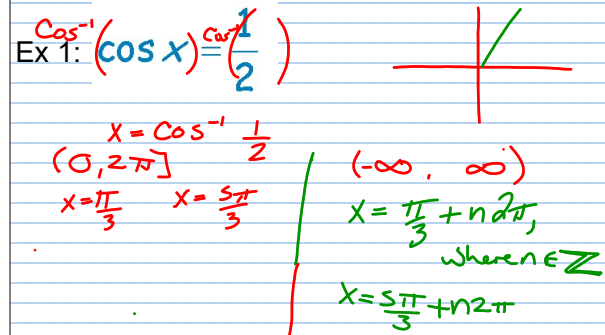 Ex 1: Cos⁻¹(cos x) = Cos⁻¹(1/2)
x = Cos⁻¹ 1/2
(0, 2π]
x = π/3 x = 5π/3
(-∞, ∞)
x = π/3 + n2π,
where n ∈ ℤ
x = 5π/3 + n2π